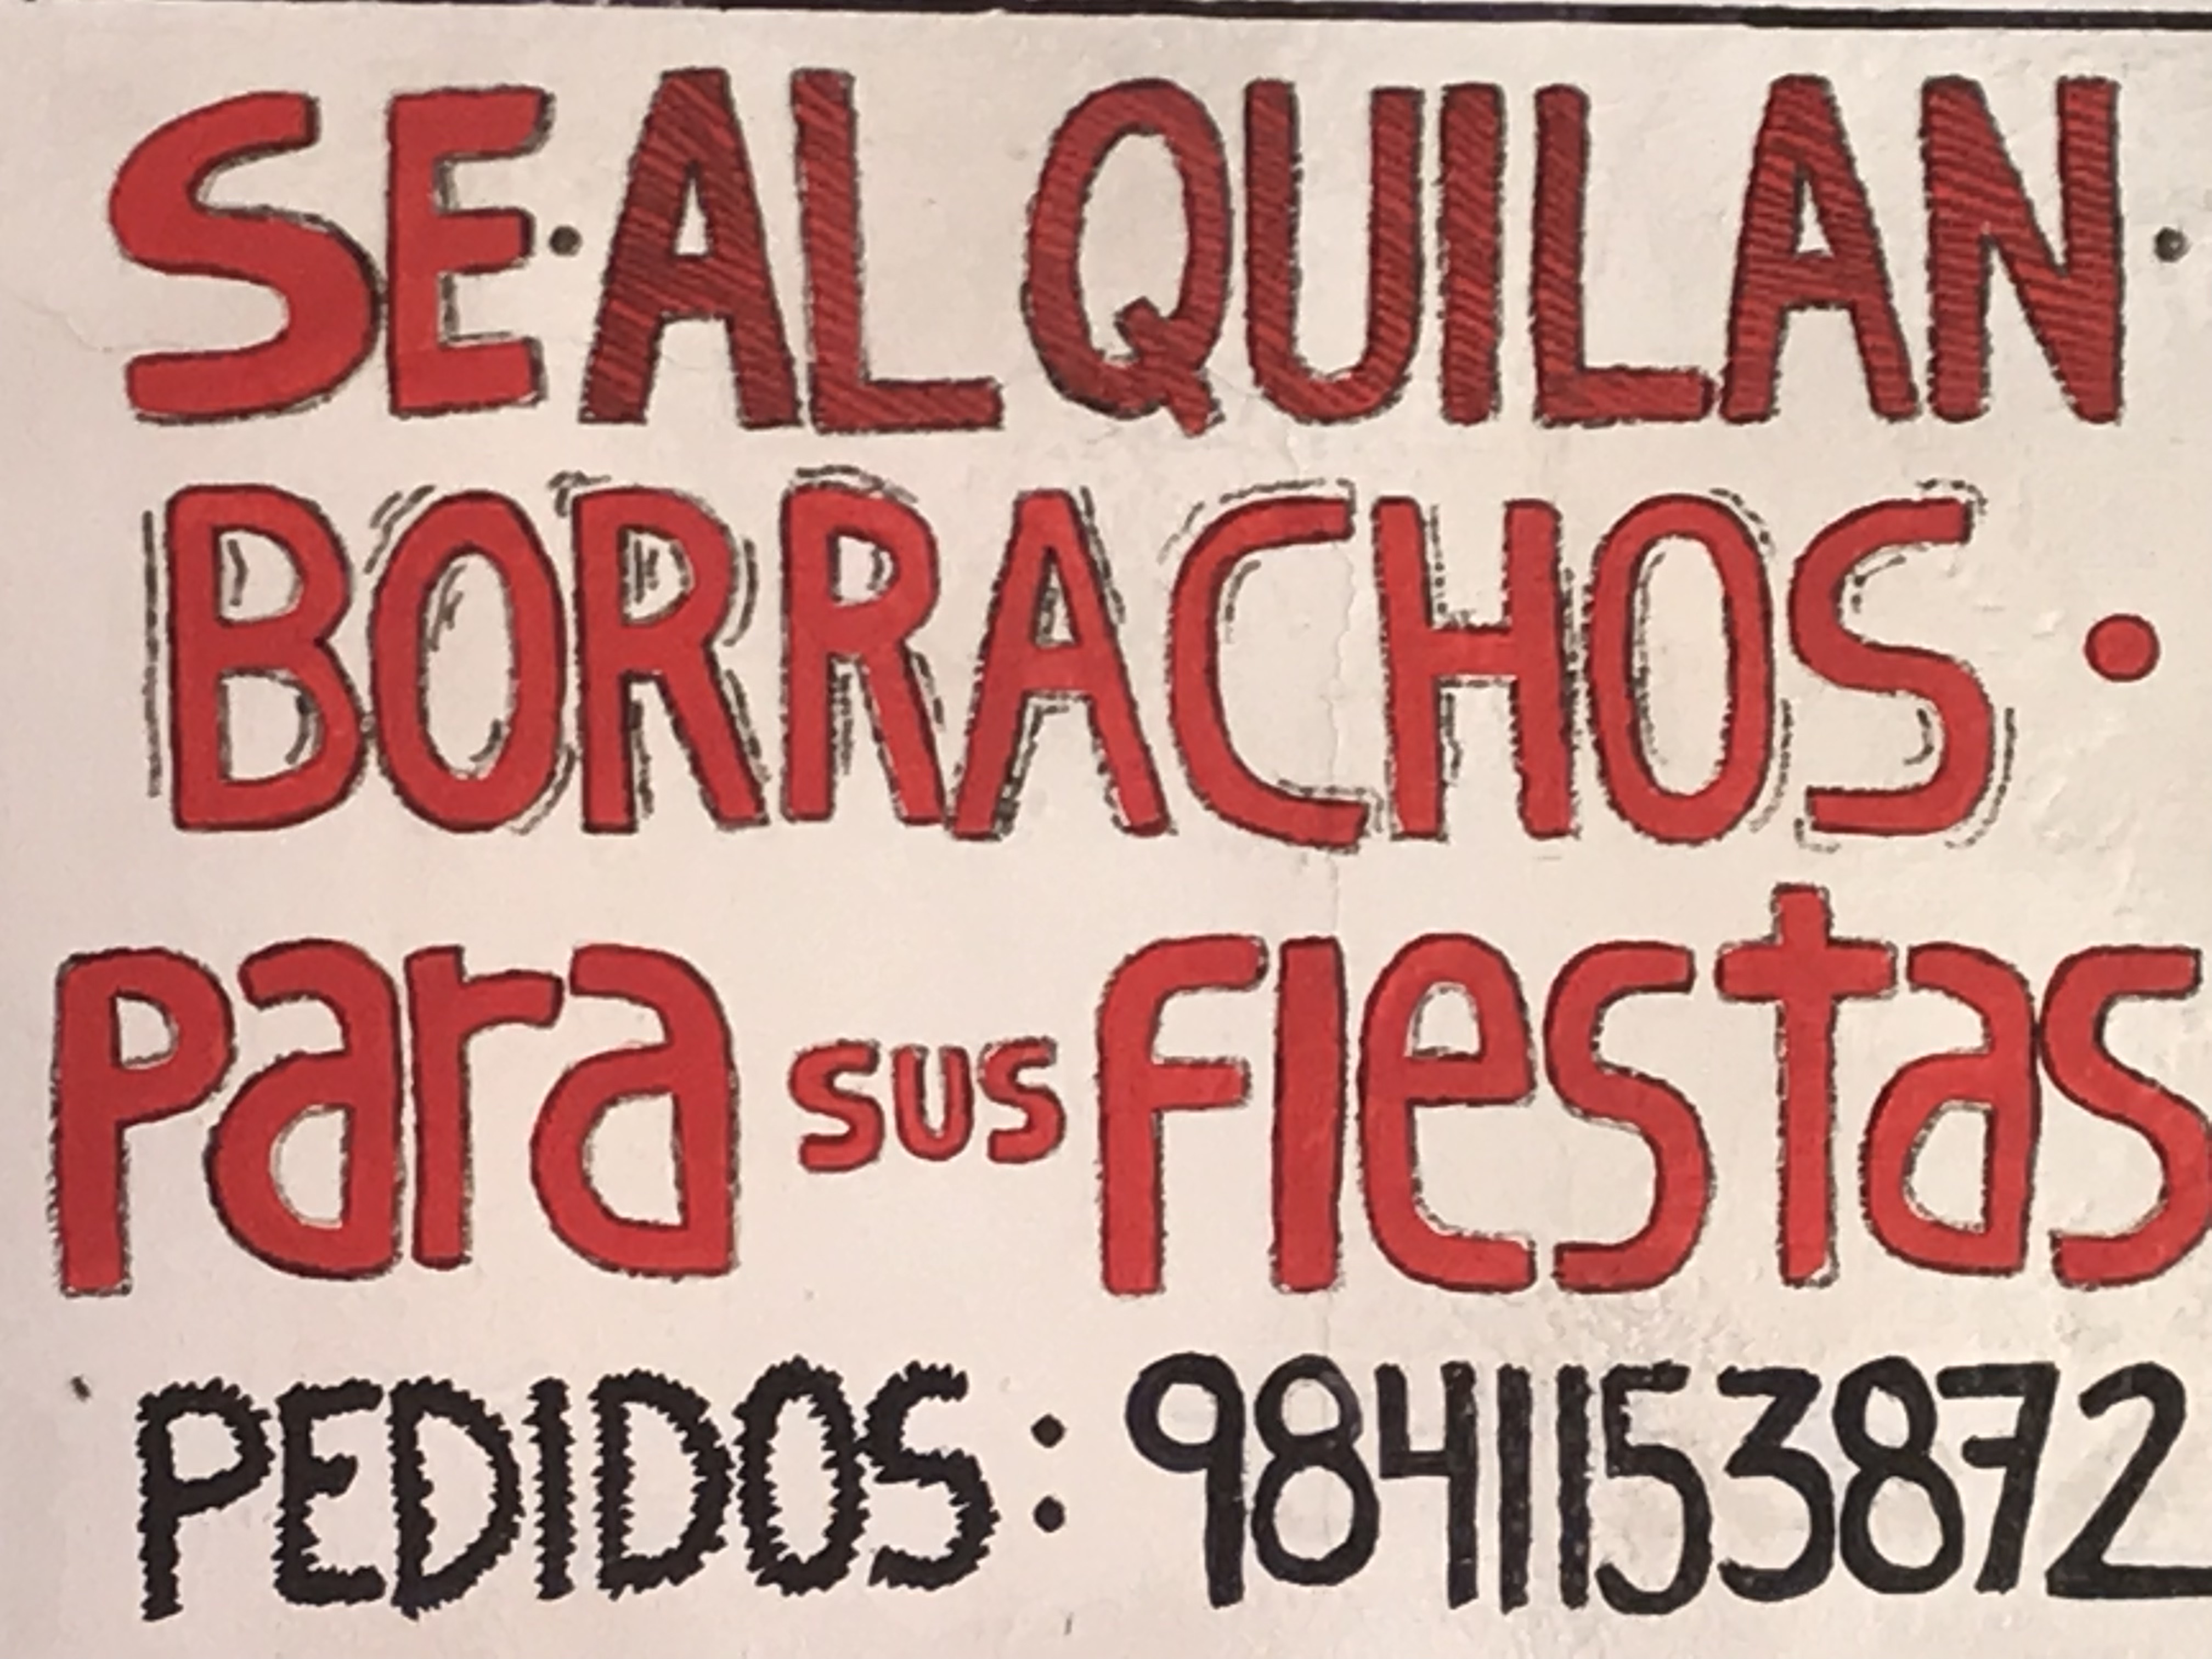 SE·ALQUILAN·
BORRACHOS·
para sus FIestas
PEDIDOS: 9841153872